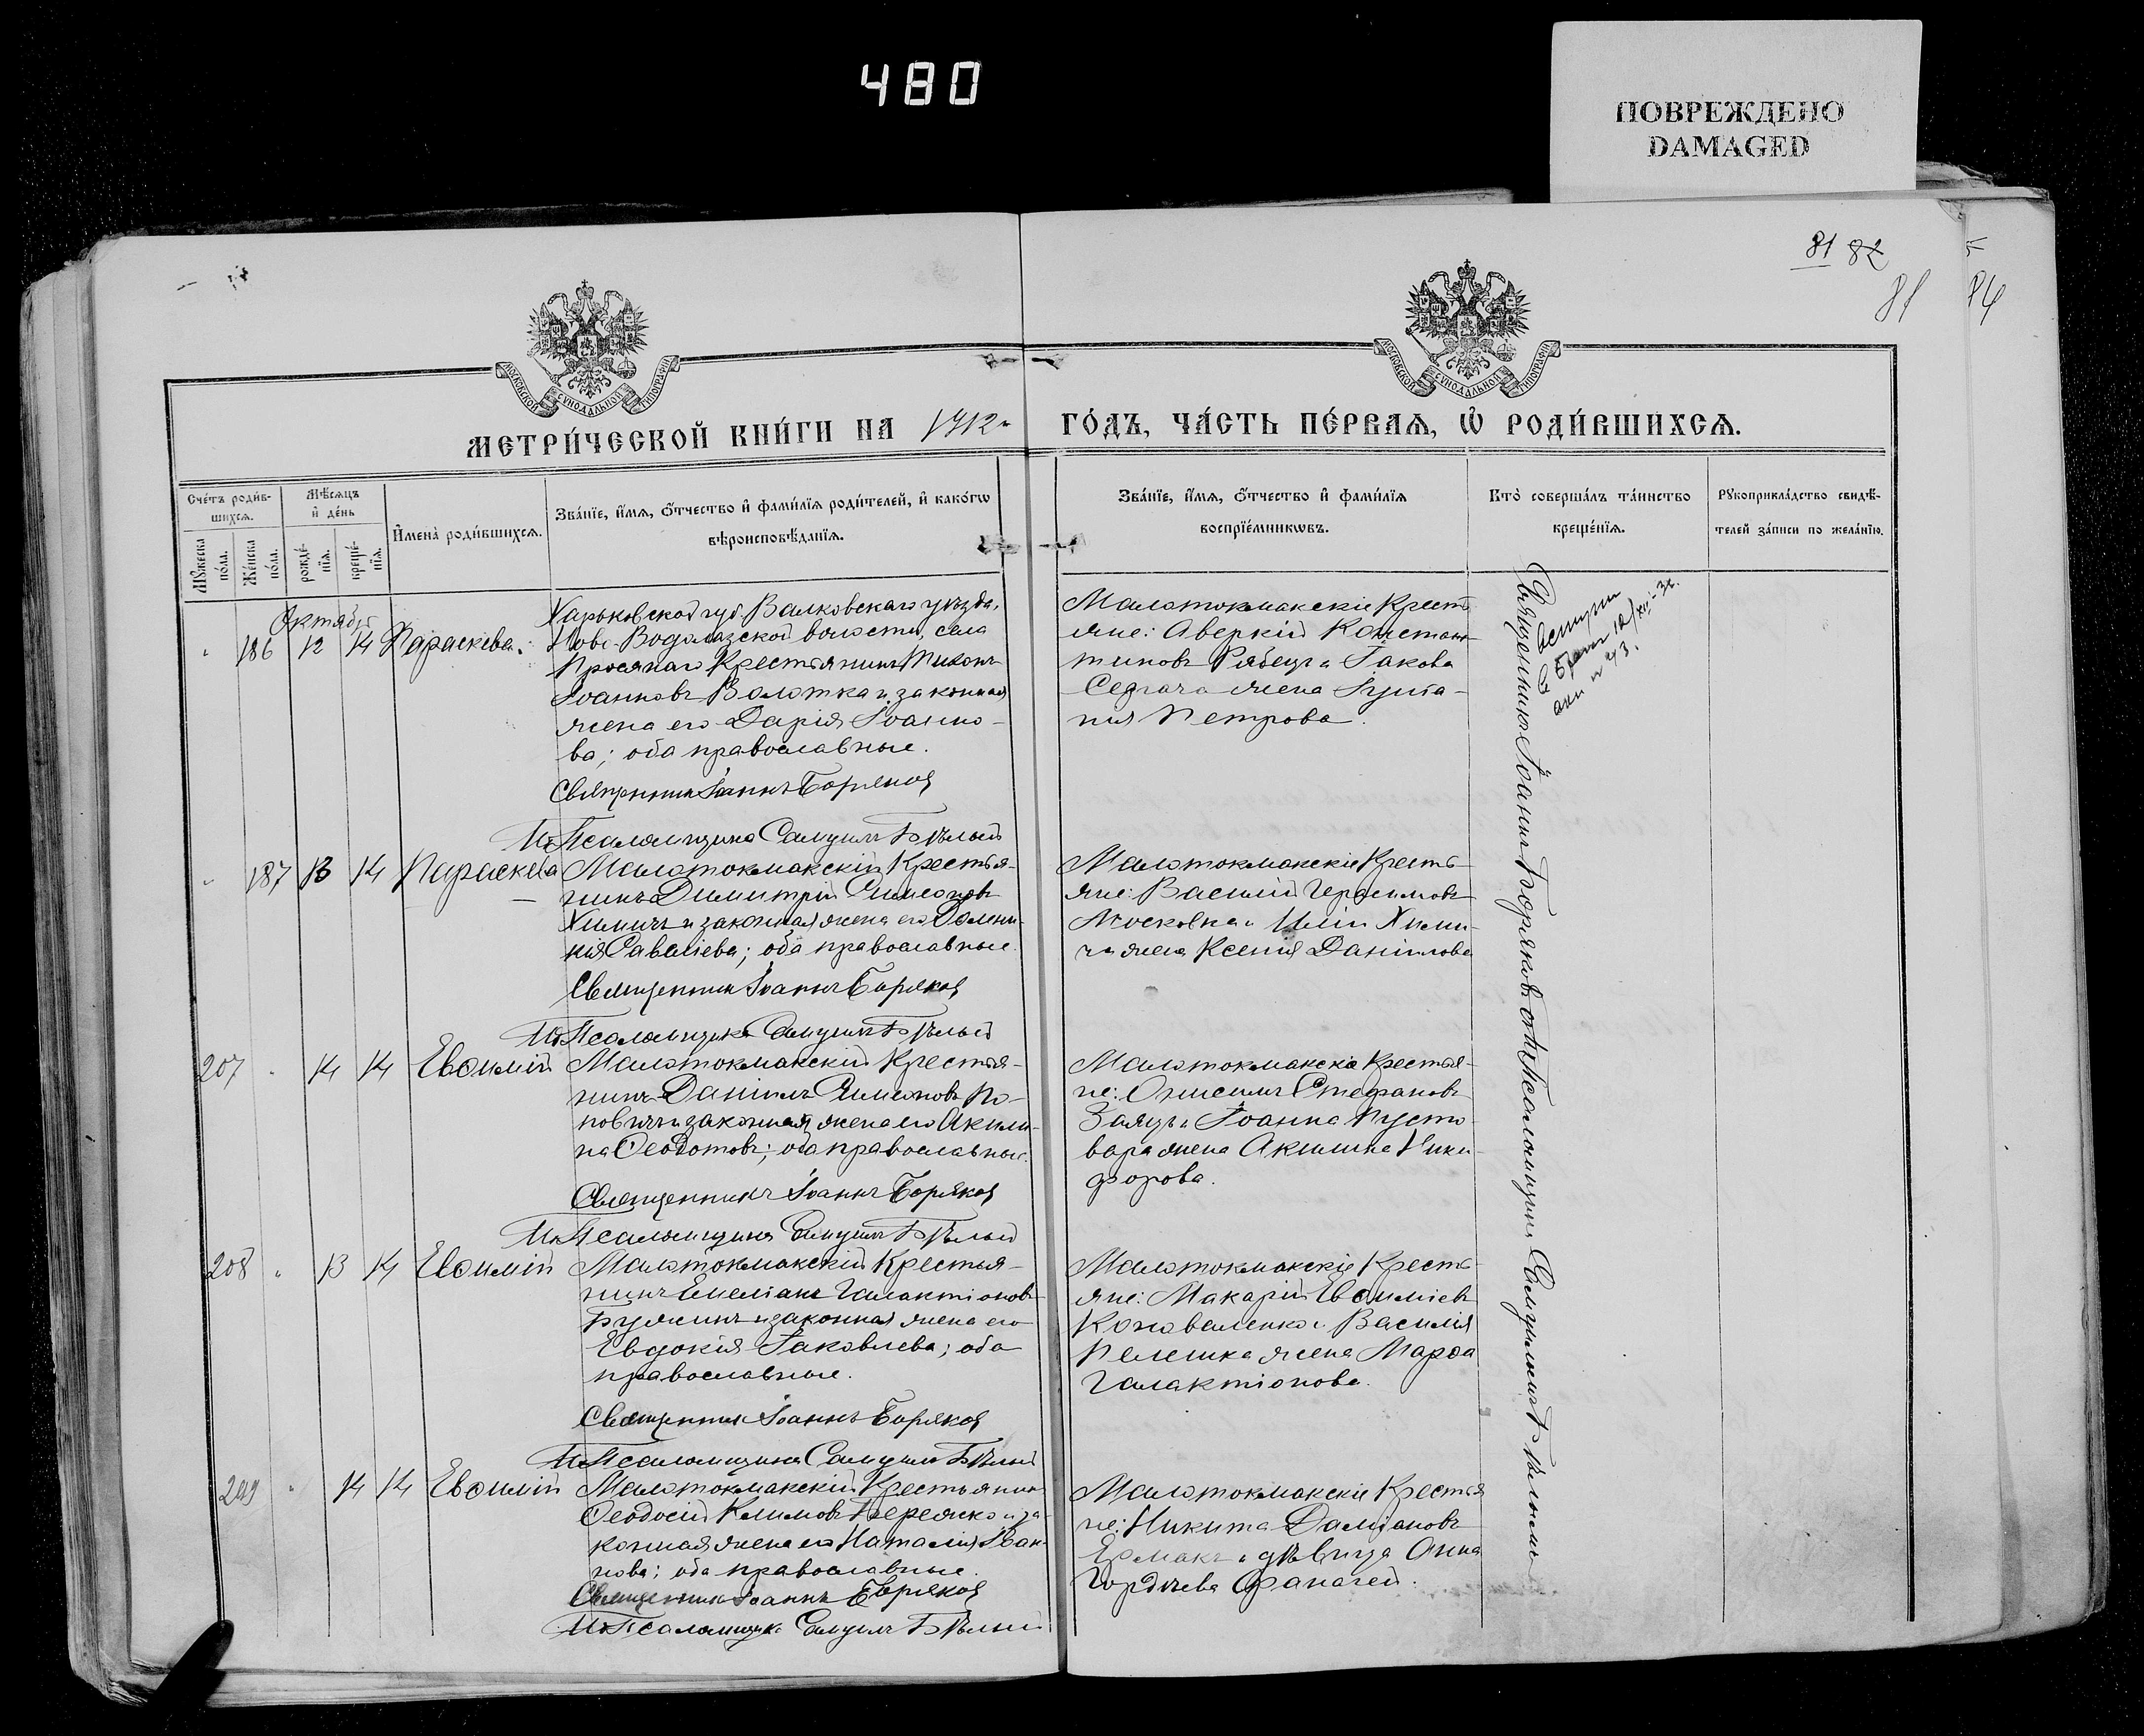 480
ПОВРЕЖДЕНО
DAMAGED
81 82
81
84
МОСКОВСКОЙ СѴНОДАЛЬНОЙ ТИПОГРАФІИ
МОСКОВСКОЙ СѴНОДАЛЬНОЙ ТИПОГРАФІИ
МЕТРИ́ЧЕСКОЙ КНИ́ГИ НА 1912 ГО́ДЪ, ЧА́СТЬ ПЕ́РВАѦ, Ѡ҆ РОДИ́ВШИХСѦ.
Сче́тъ роди́в-
шихсѧ.
Мꙋ́жеска
по́ла.
Же́нска
по́ла.
Мѣ́сѧцъ
и҆ де́нь
рожде́-
нїѧ.
креще́-
нїѧ.
И҆мена̀ роди́вшихсѧ.
Зва́нїе, и҆́мѧ, ѻ҆́тчество и҆ фами́лїѧ роди́телей, и҆ како́гѡ
вѣроисповѣ́данїѧ.
Зва́нїе, и҆́мѧ, ѻ҆́тчество и҆ фами́лїѧ
воспрїе́мникѡвъ.
Кто̀ соверша́лъ та́инство
креще́нїѧ.
Рꙋкоприкла́дство свидѣ́-
телей за́писи по жела́нїю.
Октябрь
186 12 14 Параскева.
Харьковской губ. Валковскаго уѣзда,
Ново-Водолазской волости, села
Просянаго Крестьянинъ Тихонъ
Іоанновъ Волотка и законная
жена его Дарія Іоанно-
ва; оба православные.
Священникъ Іоаннъ Боряков
И. д. Псаломщика Самуилъ Бѣлый
Малотокмакскіе Кресть
яне: Аверкій Констан-
тиновъ Рябецъ и Іакова
Седгача жена Іуліа-
нія Петрова.
Священникъ Іоаннъ Боряковъ съ Псаломщик. Самуиломъ Бѣлымъ
187 13 14 Параскева
Малотокмакскій Крестья-
нинъ Димитрій Симеоновъ
Химичъ и законная жена его Домни-
кія Саввиева; оба православные.
Священникъ Іоаннъ Боряков
И. д. Псаломщика Самуилъ Бѣлый
Малотокмакскіе Кресть-
яне: Василій Герасимовъ
Московка и Иліи Хими-
ча жена Ксенія Даниилова
207 14 14 Евѳимій
Малотокмакскій Крестья-
нинъ Даніилъ Симеоновъ По-
повичъ и законная жена его Акили-
на Ѳеодотова; оба православные.
Священникъ Іоаннъ Боряков
И. д. Псаломщика Самуилъ Бѣлый
Малотокмакскіе Крестья-
не: Онисимъ Стефановъ
Заяцъ и Іоанна Пусто-
вара жена Акилина Ники-
форова.
208 13 14 Евѳимій
Малотокмакскій Крестья-
нинъ Емеліанъ Галактіоновъ
Бужинъ и законная жена его
Евдокія Іаковлева; оба
православные.
Священникъ Іоаннъ Боряков
И. д. Псаломщика Самуилъ Бѣлый
Малотокмакскіе Кресть-
яне: Макарій Евѳиміевъ
Коноваленко и Василія
Пелешка жена Марѳа
Галактіонова.
209 14 14 Евѳимій
Малотокмакскій Крестьянинъ
Ѳеодосій Климовъ Бережко и за-
конная жена его Наталія Іоан-
нова; оба православные.
Священникъ Іоаннъ Боряков
И. д. Псаломщика Самуилъ Бѣлый
Малотокмакскіе Крестья
не: Никита Даміановъ
Ермакъ и дѣвица Анна
Гордіева Афанасей.